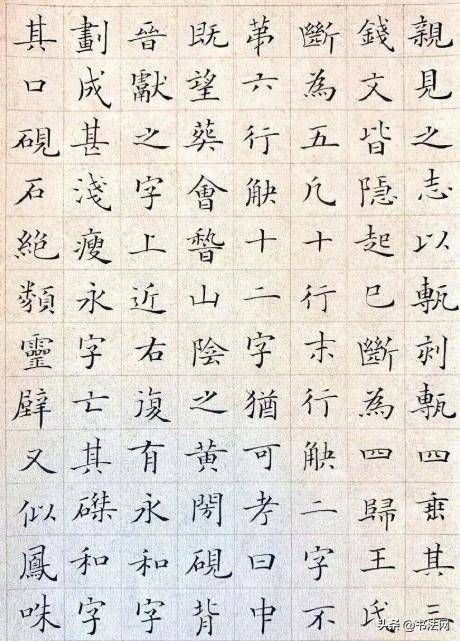 親見之志以甎刻甎四垂其三
錢文皆隱起已斷為四歸王氏
斷為五凡十行末行觖二字不
苐六行觖十二字猶可考曰中
既望葬會稽山陰之黃閍硯背
晉獻之字上近右復有永和字
劃成甚淺瘦永字亡其磔和字
其口硯石絕類靈壁又似鳳咮
头条 @书法网